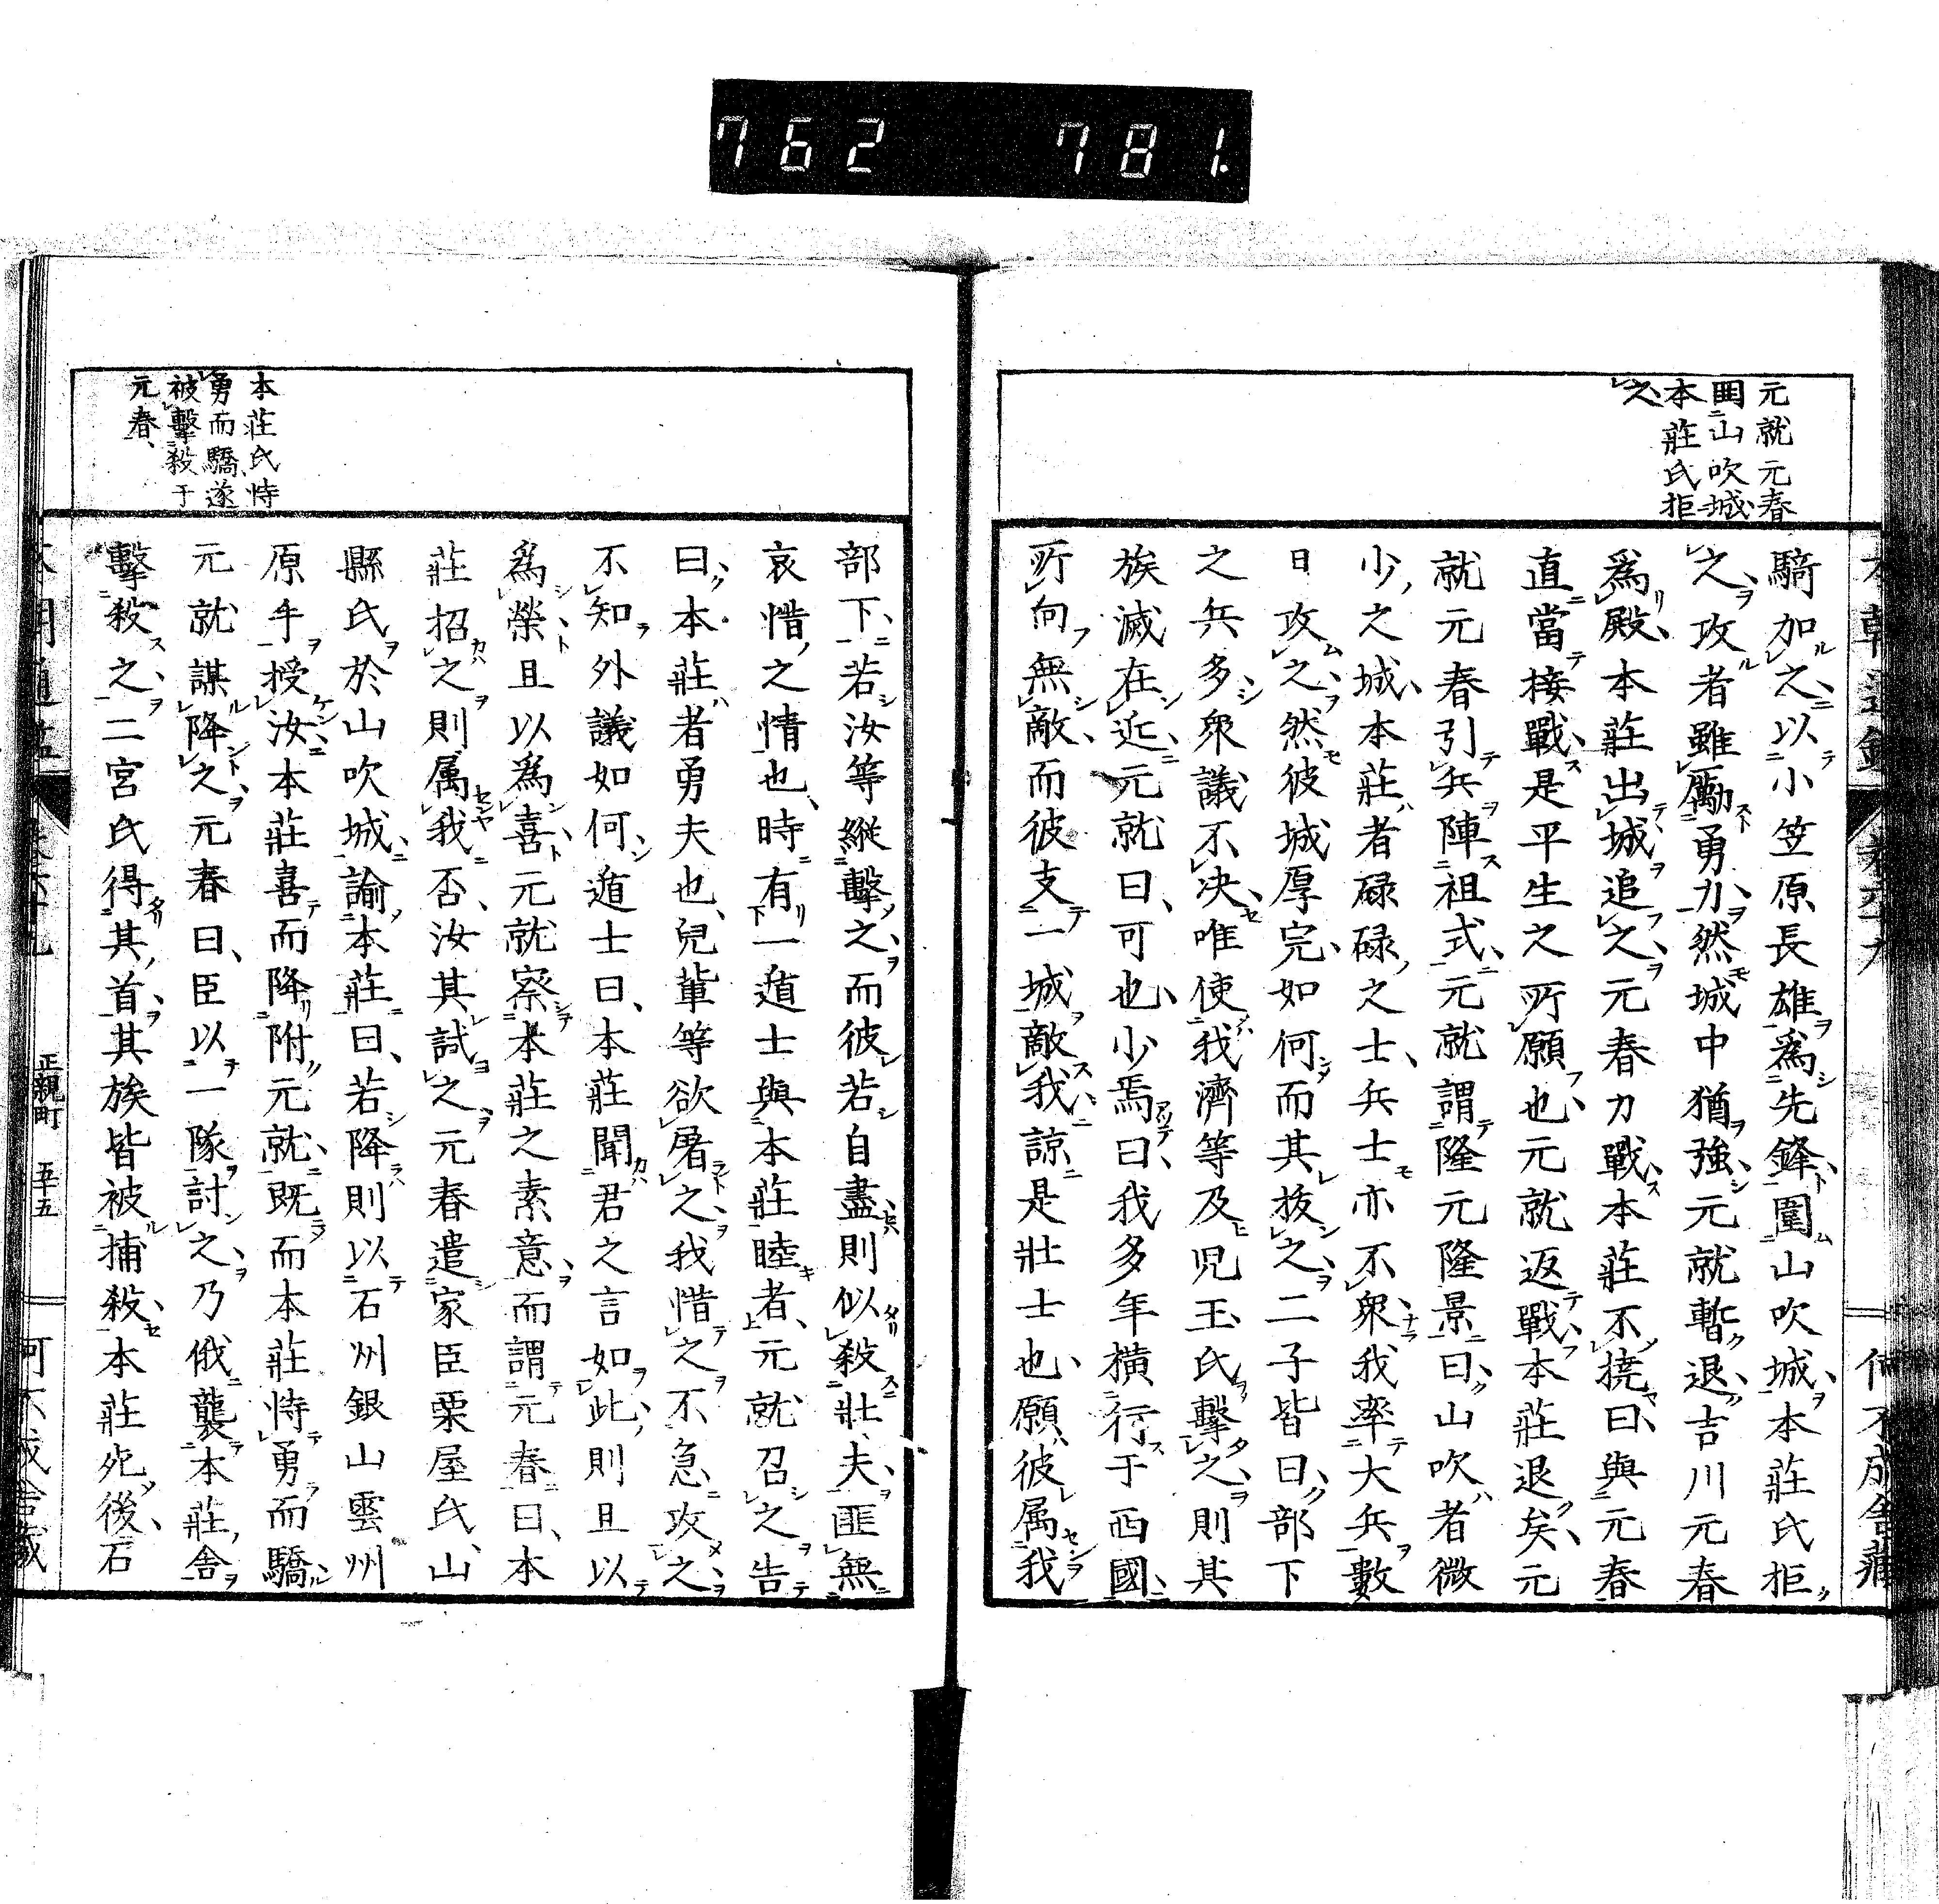 762 781.
元就元春
囲山吹城
本莊氏拒
之
騎加之以小笠原長雄爲先鋒圍山吹城本莊氏拒
之攻者雖勵勇力然城中猶強元就暫退吉川元春
爲殿本莊出城追之元春力戰本莊不撓曰與元春
直當接戰是平生之所願也元就返戰本莊退矣元
就元春引兵陣祖式元就謂隆元隆景曰山吹者微
少之城本莊者碌碌之士兵士亦不衆我率大兵數
日攻之然彼城厚完如何而其抜之二子皆曰部下
之兵多衆議不决唯使我濟等及児玉氏擊之則其
族滅在近元就曰可也少焉曰我多年横行于西國
所向無敵而彼支一城敵我諒是壯士也願彼属我
部下若汝等縱擊之而彼若自盡則似殺壯夫匪無
哀惜之情也時有一遁士與本莊睦者元就召之告
曰本莊者勇夫也兒輩等欲屠之我惜之不急攻之
不知外議如何遁士曰本莊聞君之言如此則且以
爲榮且以爲喜元就察本莊之素意而謂元春曰本
莊招之則属我否汝其試之元春遣家臣粟屋氏山
縣氏於山吹城諭本莊曰若降則以石州銀山雲州
原手授汝本莊喜而降附元就既而本莊恃勇而驕
元就謀降之元春曰臣以一隊討之乃俄襲本莊舎
擊殺之二宮氏得其首其族皆被捕殺本莊死後石
本莊氏恃
勇而驕遂
被擊殺于
元春
正親町 五十五